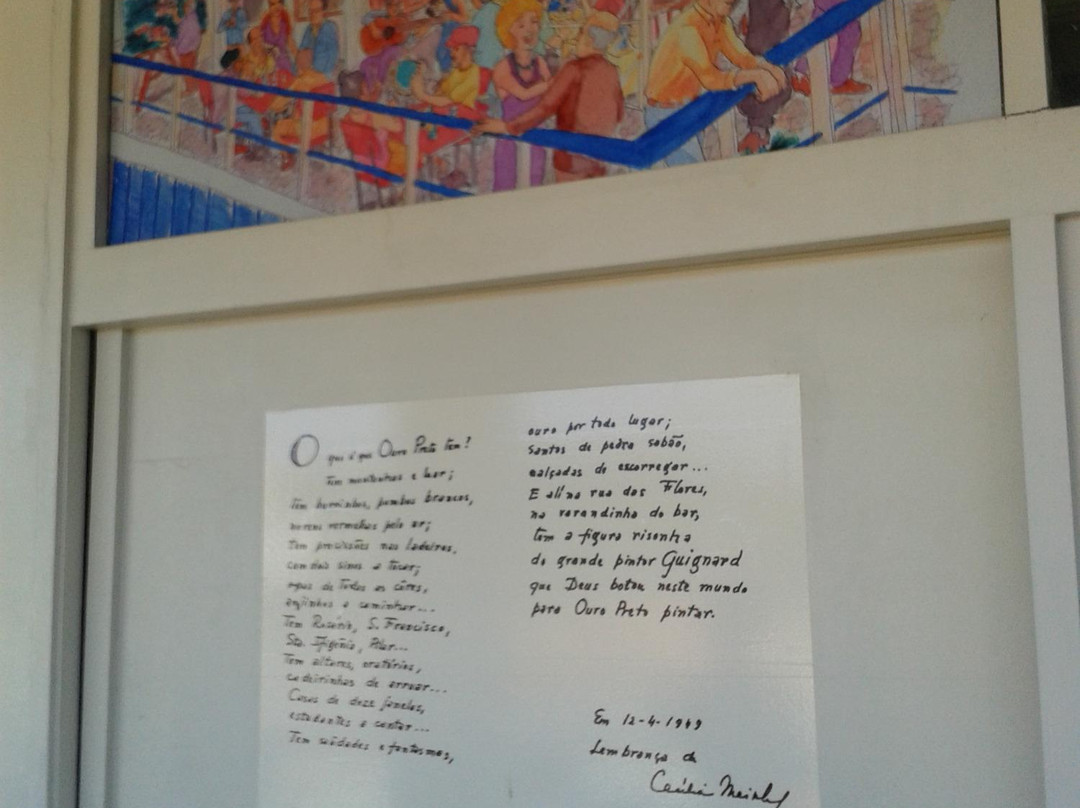 O que é que Ouro Preto tem?
Tem montanhas e luar;
Tem burrinhos, pombos brancos,
nuvens vermelhas pelo ar;
Tem procissões nas ladeiras,
com dois sinos a tocar;
opas de todas as côres,
anjinhos a caminhar...
Tem Rosário, S. Francisco,
Sta. Ifigênia, Pilar...
Tem altares, oratórios,
cadeirinhas de arruar...
Casas de doze janelas,
estudantes a cantar...
Tem saüdades e fantasmas,
ouro por todo lugar;
Santos de pedra sabão,
calçadas de escorregar...
E ali na rua das Flores,
na varandinha do bar,
tem a figura risonha
do grande pintor Guignard
que Deus botou neste mundo
para Ouro Preto pintar.
Em 12-4-1949
Lembrança de
Cecília Meireles